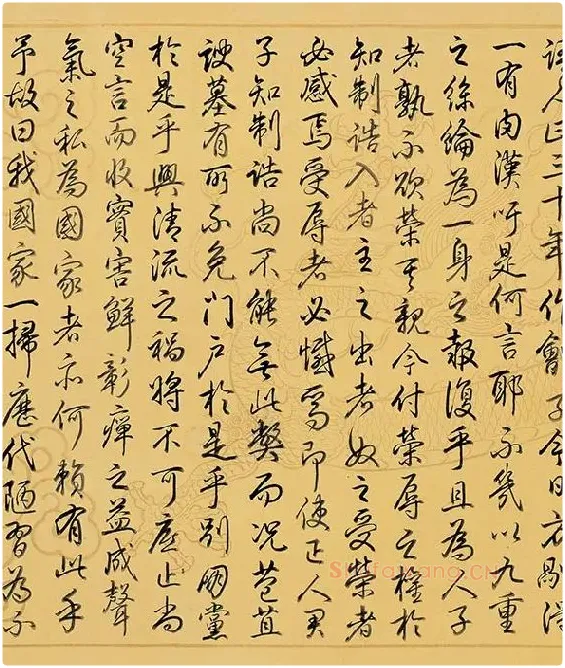 三十年作會子今日
一有肉漢吁是何言耶不幾以九重
之絲綸為一身之報復乎且為人子
者孰不欲榮其親今付榮辱之權於
知制誥入者主之出者奴之受榮者
必感焉受辱者必憾焉即使正人君
子知制誥尚不能無此弊而況苞苴
諛墓有所不免門戶於是乎別朋黨
於是乎興清流之禍將不可底止尚
空言而收實害鮮彰癉之益成聲
氣之私為國家者亦何賴有此乎
予故曰我國家一掃歷代陋習為不